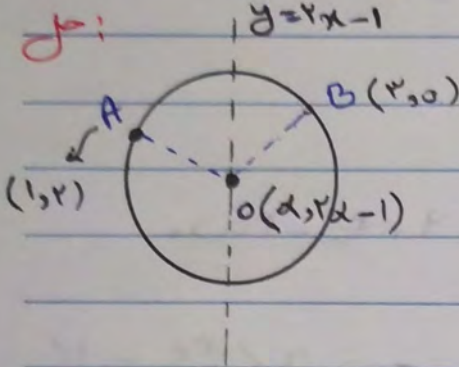 حل:
y=۲x-1
A
B (۳,0)
(1,۲)
O(α,۲α-1)